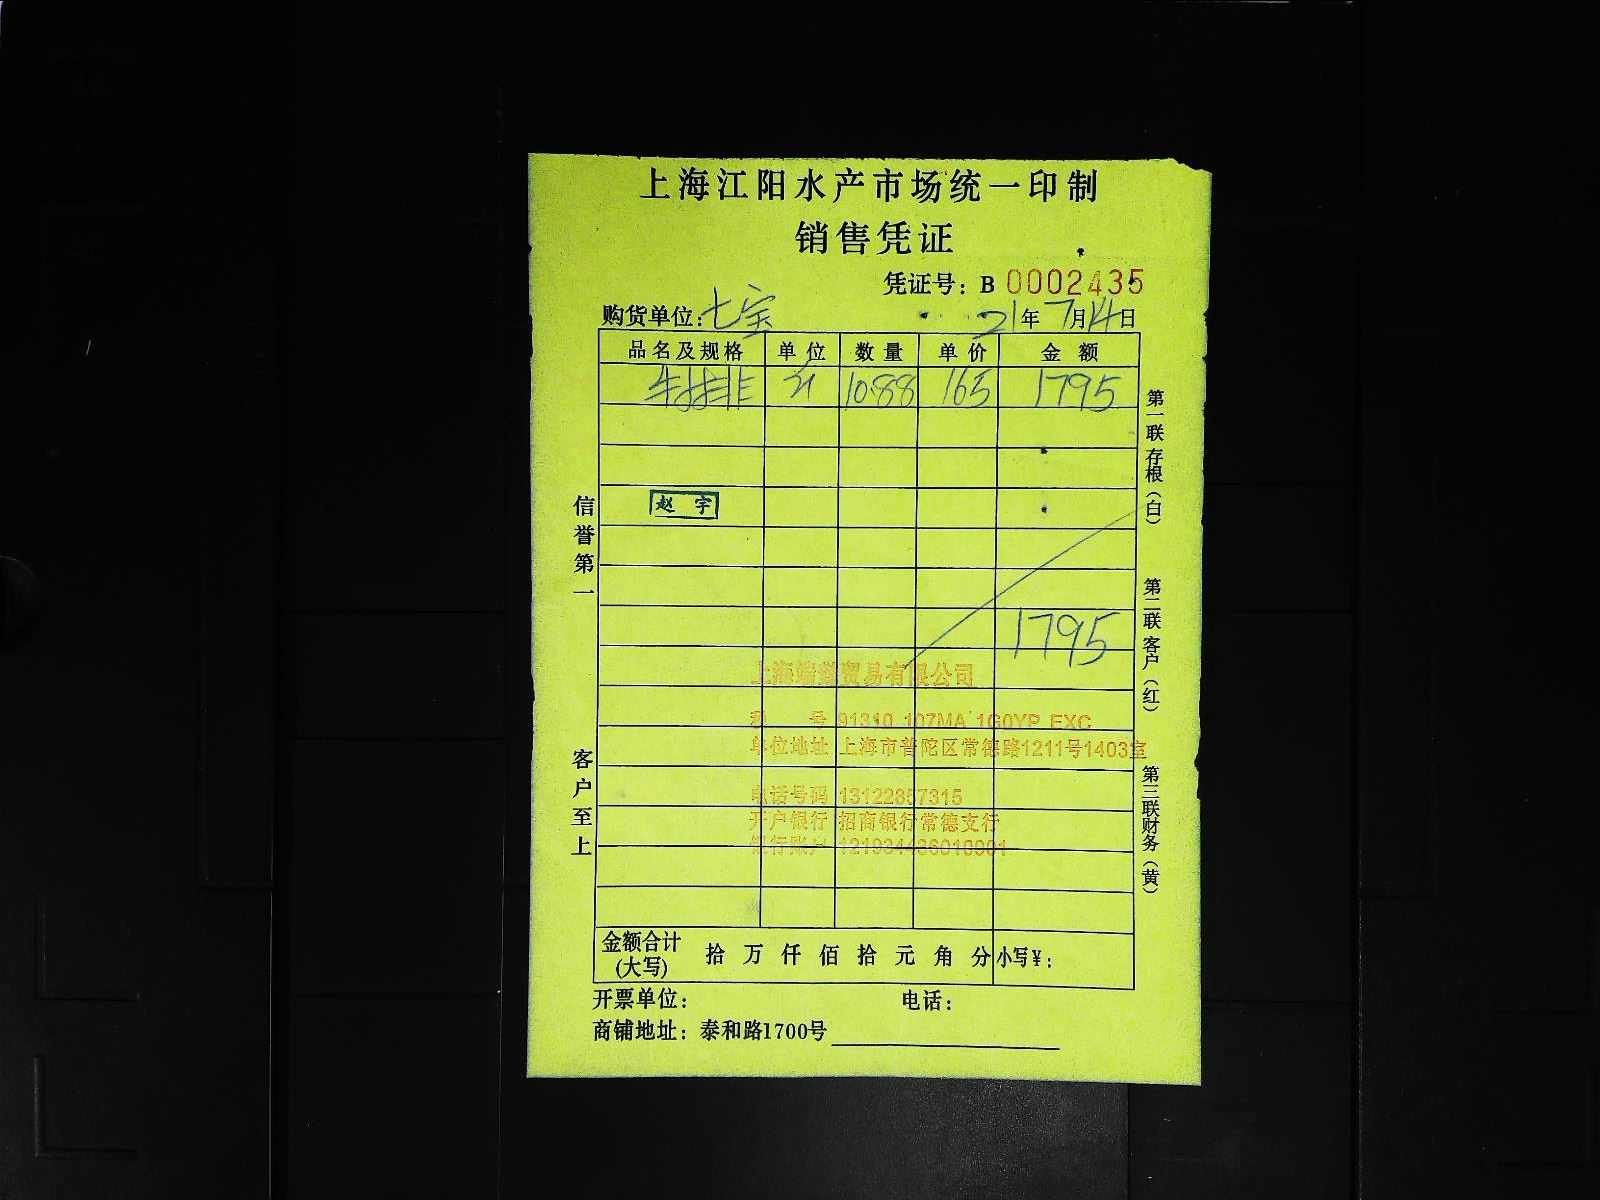 上海江阳水产市场统一印制
销售凭证
凭证号：B 0002435
购货单位：七宝 21年7月14日
品名及规格 单位 数量 单价 金额
10.88 165 1795
赵宇
1795
上海 贸易有限公司
税 号 91310 107MA 1G0YP EXC
单位地址 上海市普陀区常德路1211号1403室
电话号码 13122857315
开户银行 招商银行常德支行
银行账户
金额合计(大写) 拾 万 仟 佰 拾 元 角 分 小写￥：
开票单位： 电话：
商铺地址：泰和路1700号
信誉第一
客户至上
第一联 存根（白）
第二联 客户（红）
第三联 财务（黄）